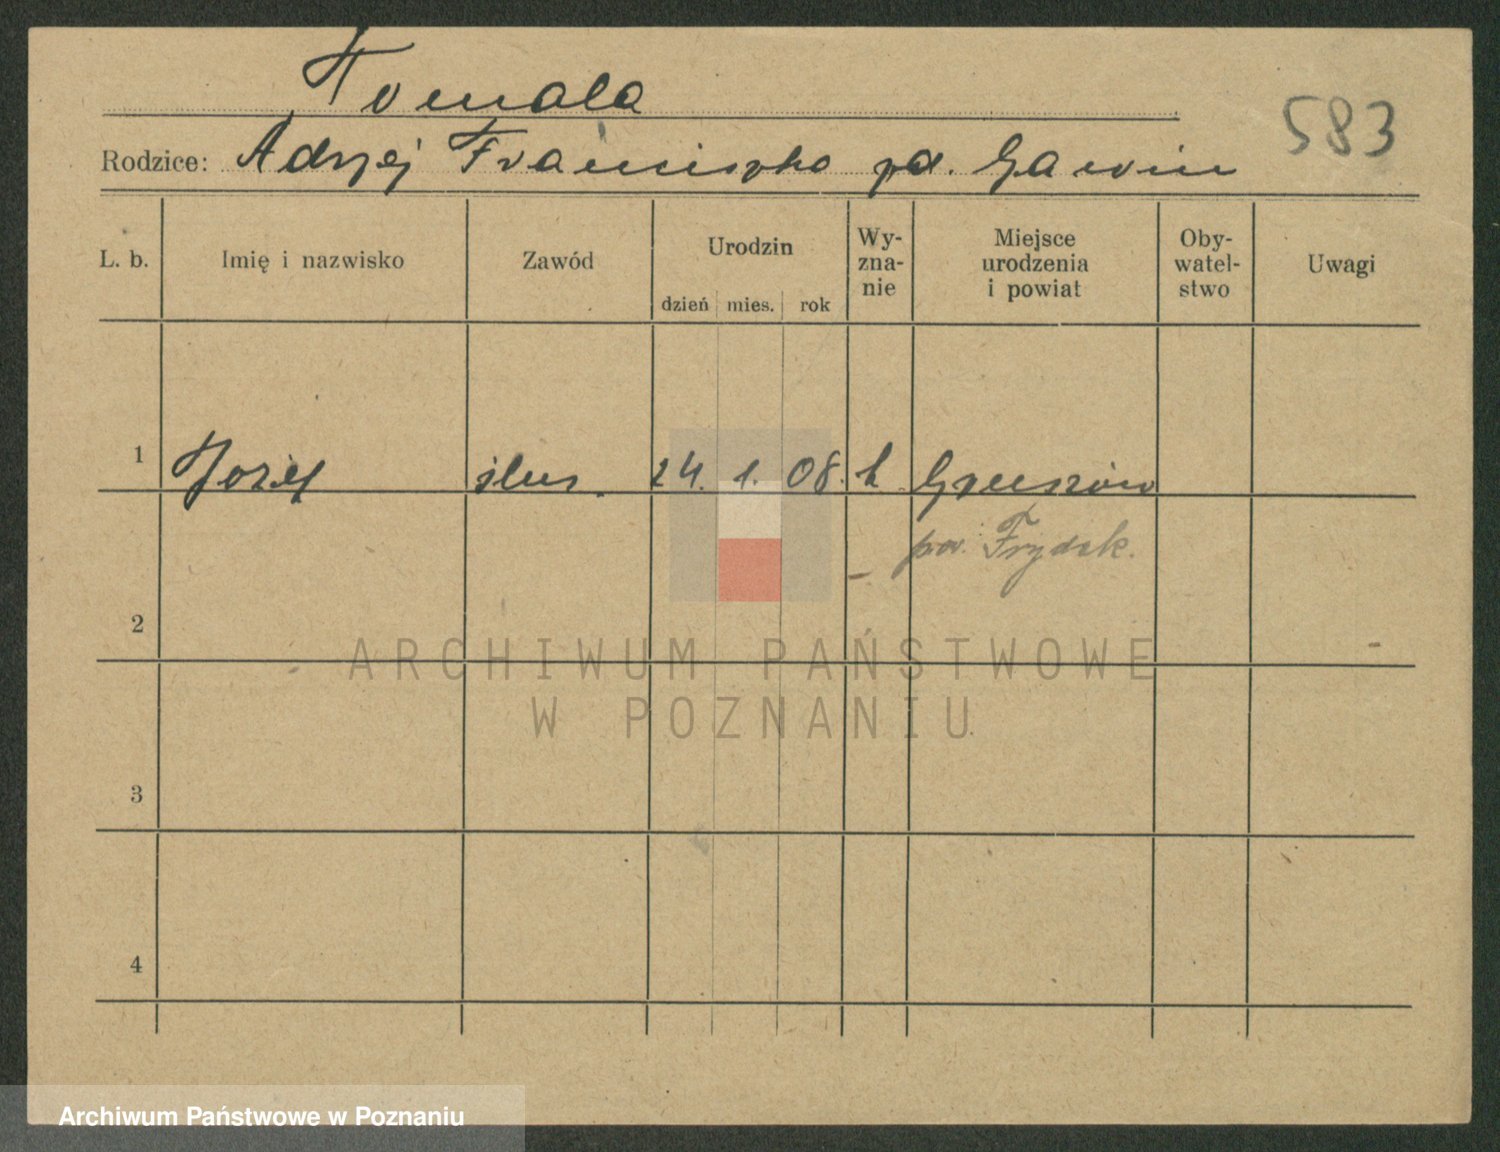 Tomala
583
Rodzice: Adrzej Franciszka zd. Gawin
L. b. Imię i nazwisko Zawód Urodzin Wy-zna-nie Miejsce urodzenia i powiat Oby-watel-stwo Uwagi
dzień mies. rok
1 Józef ślus. 24. 1. 08. k Gruszów
pow. Frydek.
2
ARCHIWUM PAŃSTWOWE
W POZNANIU
3
4
Archiwum Państwowe w Poznaniu